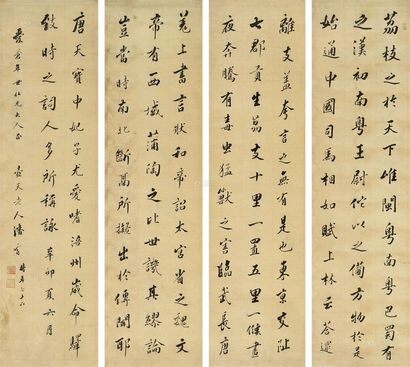 荔枝之於天下唯閩粤南粤巴蜀有
之漢初南粤王尉佗以之備方物於是
始通中國司馬相如賦上林云荅遝
離支蓋夸言之無有是也東京交趾
七郡貢生荔支十里一置五里一候晝
夜奔騰有毒虫猛獸之害臨武長唐
羗上書言狀和帝詔太官省之魏文
帝有西域蒲陶之比世譏其繆論
豈當時南北斷隔所擬出於傳聞耶
唐天寶中妃子尤愛嗜涪州歲命驛
致時之詞人多所稱詠辛卯夏六月
年世仁兄大人正 老人潘 時年六十八